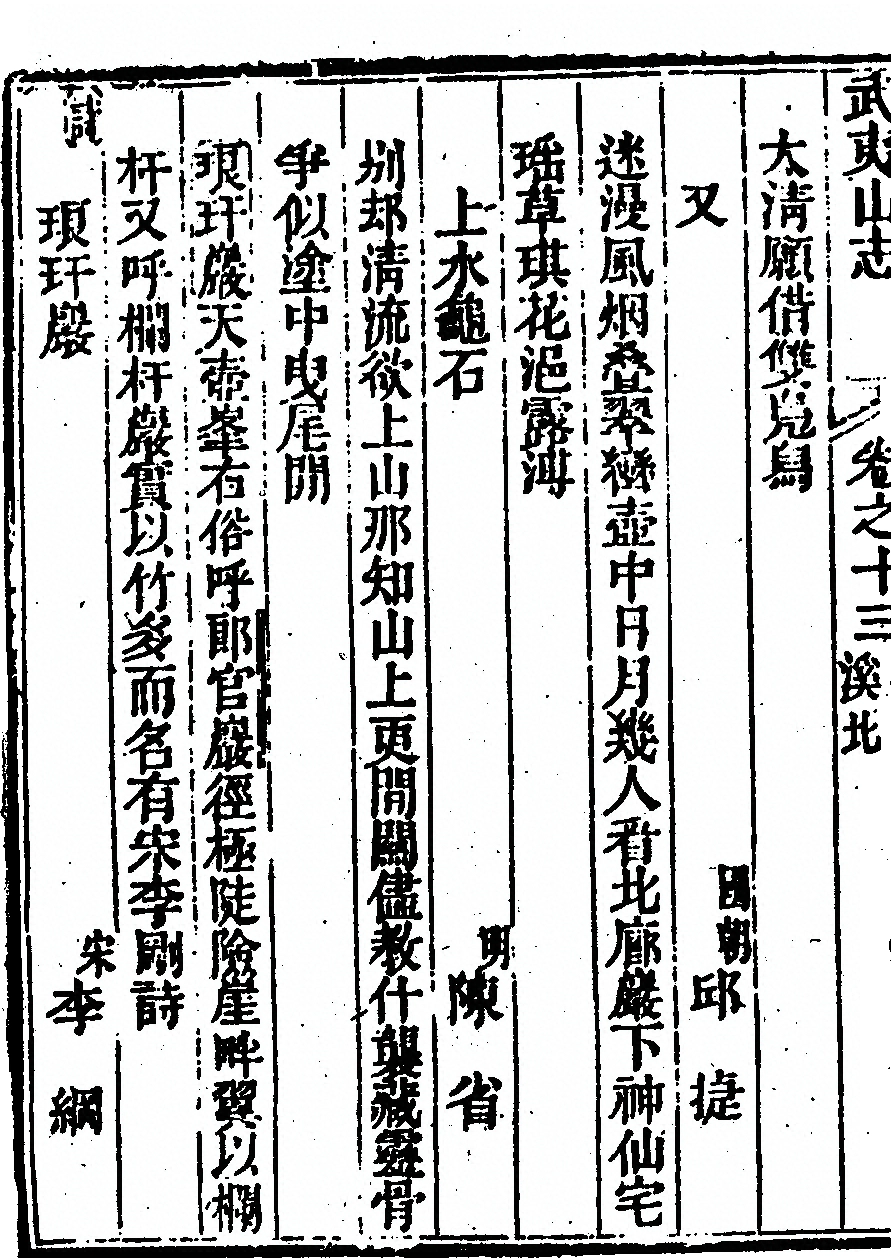 武夷山志 卷之十三 溪北
太清願借雙鳧舄
又 國朝 邱捷
迷漫風烟叠翠巒壺中日月幾人看北廊巖下神仙宅
瑶草琪花浥露漙
上水龜石 明 陳省
别却清流欲上山那知山上更閒關儘教什襲藏靈骨
争似塗中曳尾閒
琅玕巖天壺峯右俗呼郎官巖徑極陡險崖畔翼以欄
杆又呼欄杆巖實以竹多而名有宋李剛詩
琅玕巖 宋 李綱